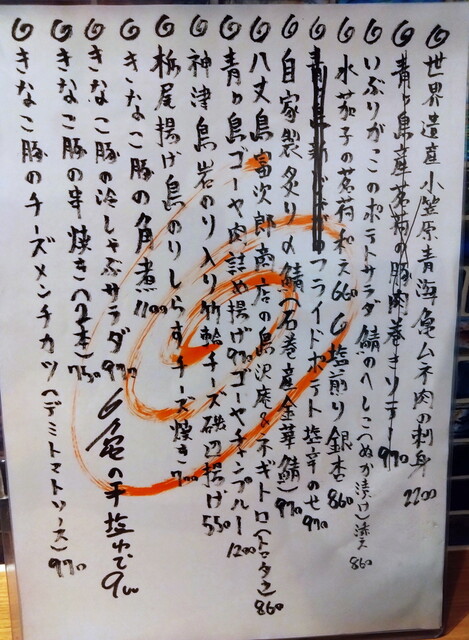 世界遺産小笠原青海亀ムネ肉の刺身 2200
青ヶ島産茗荷の豚肉巻きソテー 970
いぶりがっこのポテトサラダ 鯖のへしこ(ぬか漬け)添え 860
水茄子の茗荷和え 660 塩煎り銀杏 860
フライドポテト塩辛のせ 970
自家製炙り〆鯖(石巻産金華鯖) 970
八丈島富次郎商店の島沢庵&ネギトロ(トロタク) 860
青ヶ島ゴーヤ肉詰め揚げ 970 ゴーヤチャンプルー 1200
神津島岩のり入り竹輪チーズ磯辺揚げ 550
栃尾揚げ島のりしらすチーズ焼き 700
きなこ豚の角煮 1100
きなこ豚の冷しゃぶサラダ 970 亀の手塩ゆで 900
きなこ豚の串焼き(2本) 750
きなこ豚のチーズメンチカツ(デミトマトソース) 970